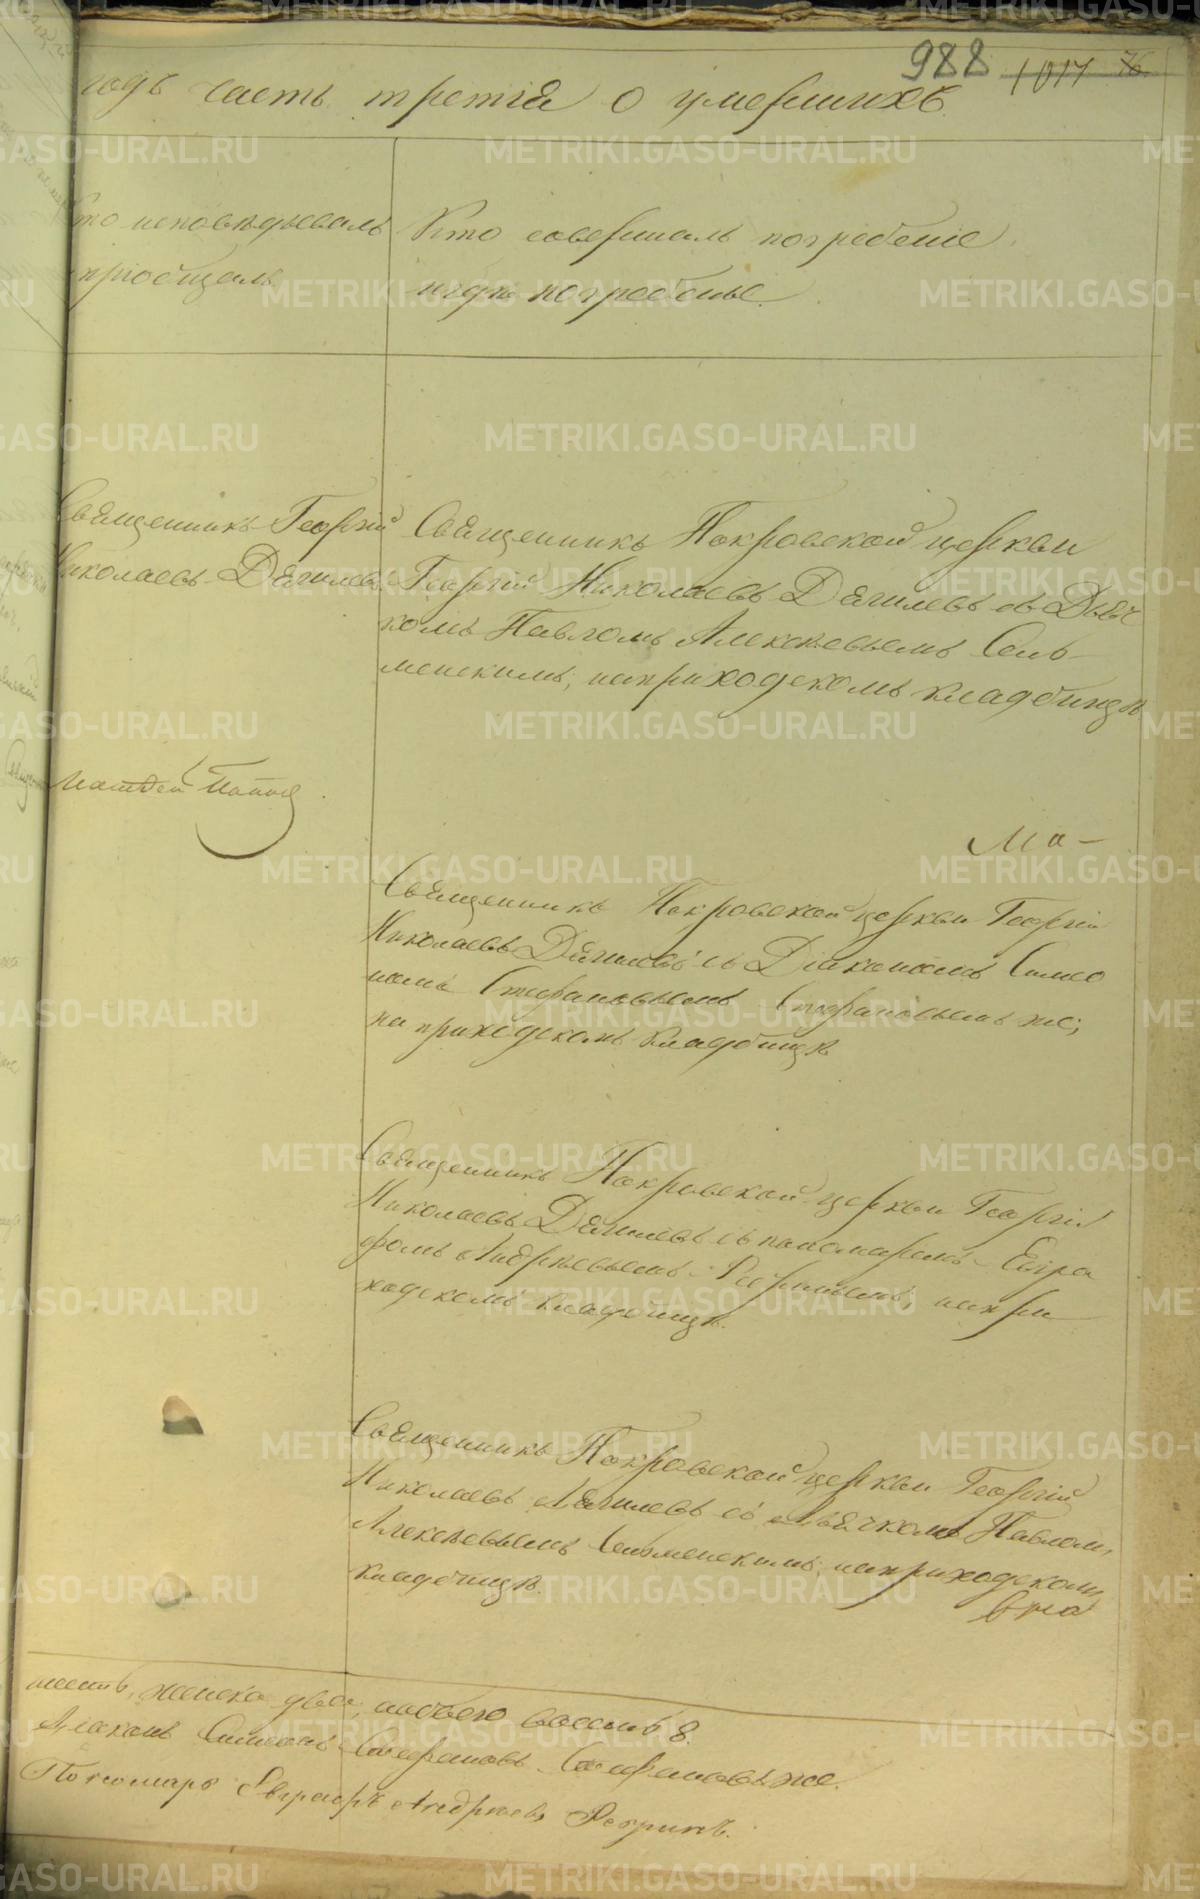 988 1017 76
годъ часть третiя о умершихъ
Кто исповѣдывалъ
прiобщалъ
Кто совершалъ погребенiе
и гдѣ погребены.
Священникъ Георгiй
Николаевъ Дягилевъ
Священникъ Покровской церкви
Георгiй Николаевъ Дягилевъ съ Дьяч
комъ Павломъ Алексѣевымъ Сель
менскимъ, на приходскомъ кладбищѣ
Матѳей Поповъ
Ма-
Священникъ Покровской церкви Георгiй
Николаевъ Дягилевъ съ Дiакономъ Симео
номъ Стефановымъ Стефановымъ же;
на приходскомъ кладбищѣ
Священникъ Покровской церкви Георгiй
Николаевъ Дягилевъ съ пономаремъ Евгра
фомъ Андрѣевымъ Ребринымъ, на при
ходскомъ кладбищѣ.
Священникъ Покровской церкви Георгiй
Николаевъ Дягилевъ съ Дьячкомъ Павломъ
Алексѣевымъ Сельменскимъ, на приходскомъ
кладбищѣ.
женска двое, обоего восемь 8.
Дiаконъ Симеонъ Стефановъ Стефановъ же.
Пономарь Евграфъ Андрѣевъ Ребринъ.
METRIKI.GASO-URAL.RU